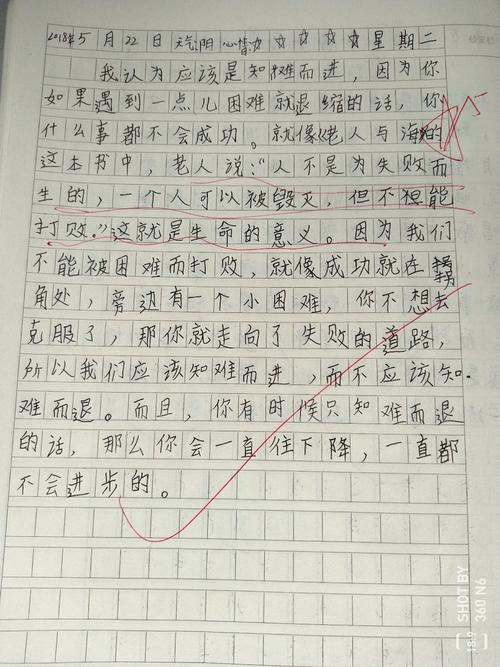 2018年5月22日 天气阴 心情 ☆☆☆☆星期二
我认为应该是知难而进，因为你
如果遇到一点儿困难就退缩的话，你
什么事都不会成功。就像《老人与海》的
这本书中，老人说："人不是为失败而
生的，一个人可以被毁灭，但不想能
打败。"这就是生命的意义。因为我们
不能被困难而打败，就像成功就在拐
角处，旁边有一个小困难，你不想去
克服了，那你就走向了失败的道路，
所以我们应该知难而进，而不应该知
难而退。而且，你有时候只知难而退
的话，那么你会一直往下降，一直都
不会进步的。
SHOT BY
360 N6